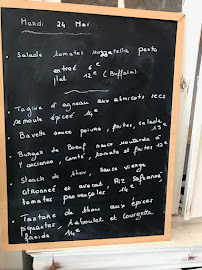 Mardi 24 Mai
- Salade tomates mozzarella pesto
entrée 6€
plat 12€ (Buffala)
- Tagine d'agneau aux abricots secs
semoule épicée 14€
- Bavette sauce poivre, frites, salade
15€
- Burger de Boeuf sauce moutarde à
l'ancienne, comté, tomate et frites 13€
- Steack de thon, sauce vierge
citronnée et avocat, Riz safranné,
tomates provençales 14€
- Tartare de thon aux épices
piquantes, taboulet et courgette
froide 14€